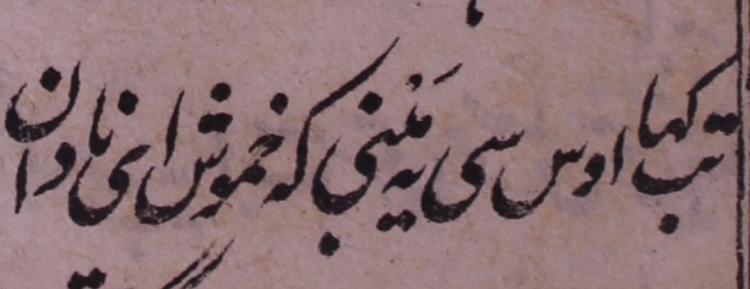 تب کہا اوس سی یہ مَیْنی کہ خموش ای نادان